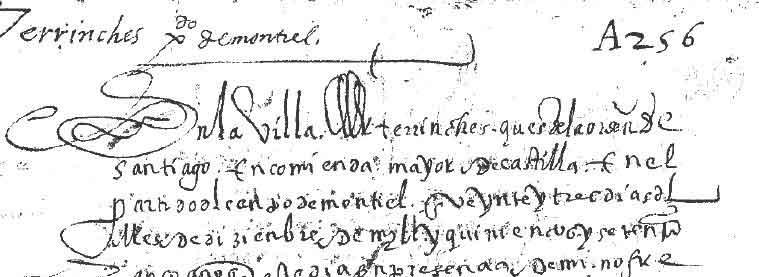 Terrinches pdo de montiel. A256
En la Villa de terrinches. que es de la orden de
Santiago. Encomienda mayor de castilla. En el
partido del canpo de montiel. a veynte y tres dias del
Mes de dizienbre de mill y quinientos y setenta
en presencia de mi. nofre